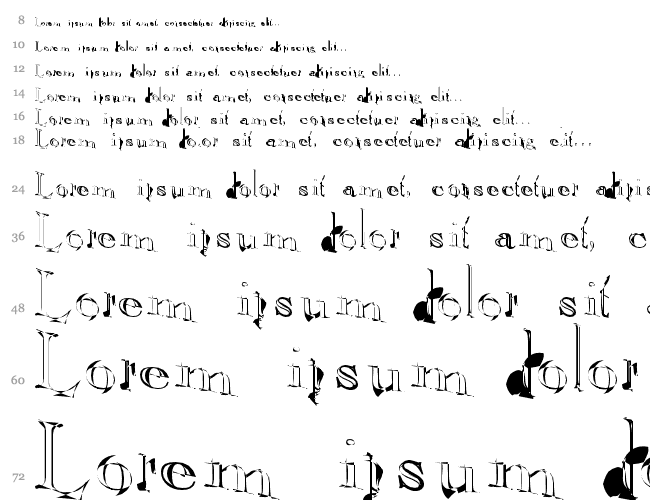 8 Lorem ipsum dolor sit amet, consectetuer adipiscing elit...
10 Lorem ipsum dolor sit amet, consectetuer adipiscing elit...
12 Lorem ipsum dolor sit amet, consectetuer adipiscing elit...
14 Lorem ipsum dolor sit amet, consectetuer adipiscing elit...
16 Lorem ipsum dolor sit amet, consectetuer adipiscing elit...
18 Lorem ipsum dolor sit amet, consectetuer adipiscing elit...
24 Lorem ipsum dolor sit amet, consectetuer adipis
36 Lorem ipsum dolor sit amet, c
48 Lorem ipsum dolor sit
60 Lorem ipsum dolor
72 Lorem ipsum d